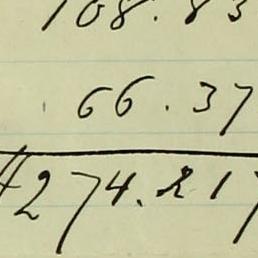 108.83
66.37
#274.217